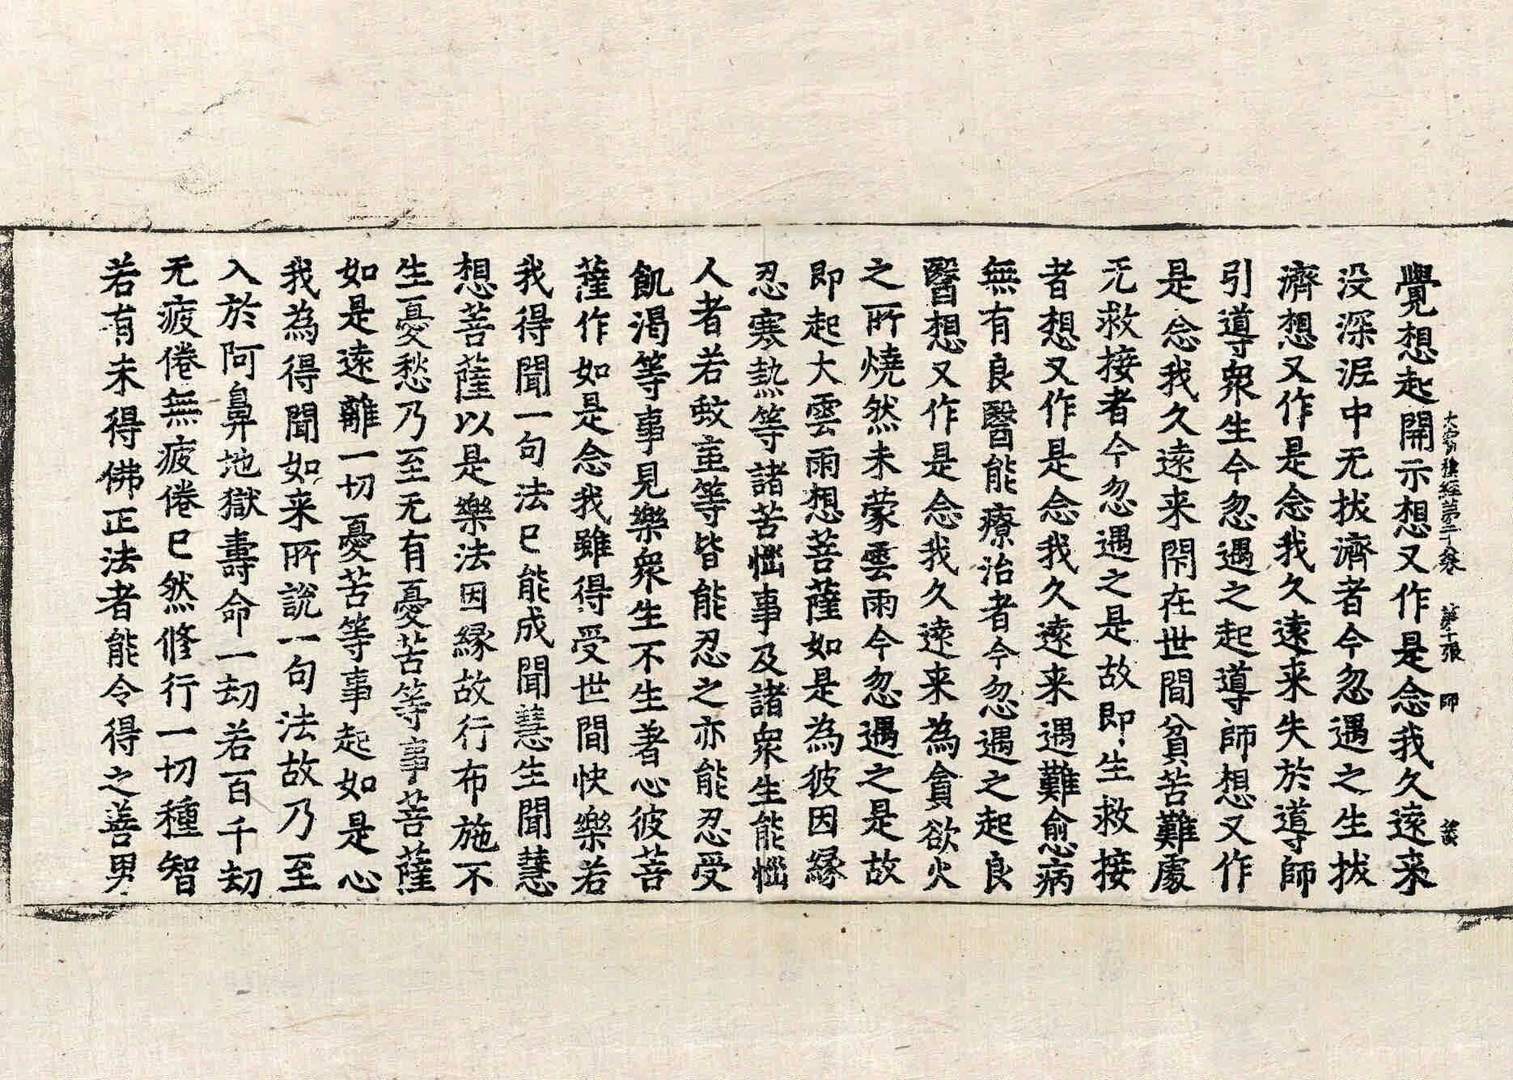 第十張 師
覺想起開示想又作是念我久遠来
没深泥中无拔濟者今忽遇之生拔
濟想又作是念我久遠来失於導師
引導衆生今忽遇之起導師想又作
是念我久遠来閇在世間貧苦難處
无救接者今忽遇之是故即生救接
者想又作是念我久遠来遇難愈病
無有良醫能療治者今忽遇之起良
醫想又作是念我久遠来為貪欲火
之所燒然未蒙雲雨今忽遇之是故
即起大雲雨想菩薩如是為彼因縁
忍寒熱等諸苦惱事及諸衆生能惱
人者若蚊䖟等皆能忍之亦能忍受
飢渴等事見樂衆生不生著心彼菩
薩作如是念我雖得受世間快樂若
我得聞一句法已能成聞慧生聞慧
想菩薩以是樂法因縁故行布施不
生憂愁乃至无有憂苦等事菩薩
如是遠離一切憂苦等事起如是心
我為得聞如来所說一句法故乃至
入於阿鼻地獄壽命一劫若百千劫
无疲倦無疲倦已然修行一切種智
若有未得佛正法者能令得之善男